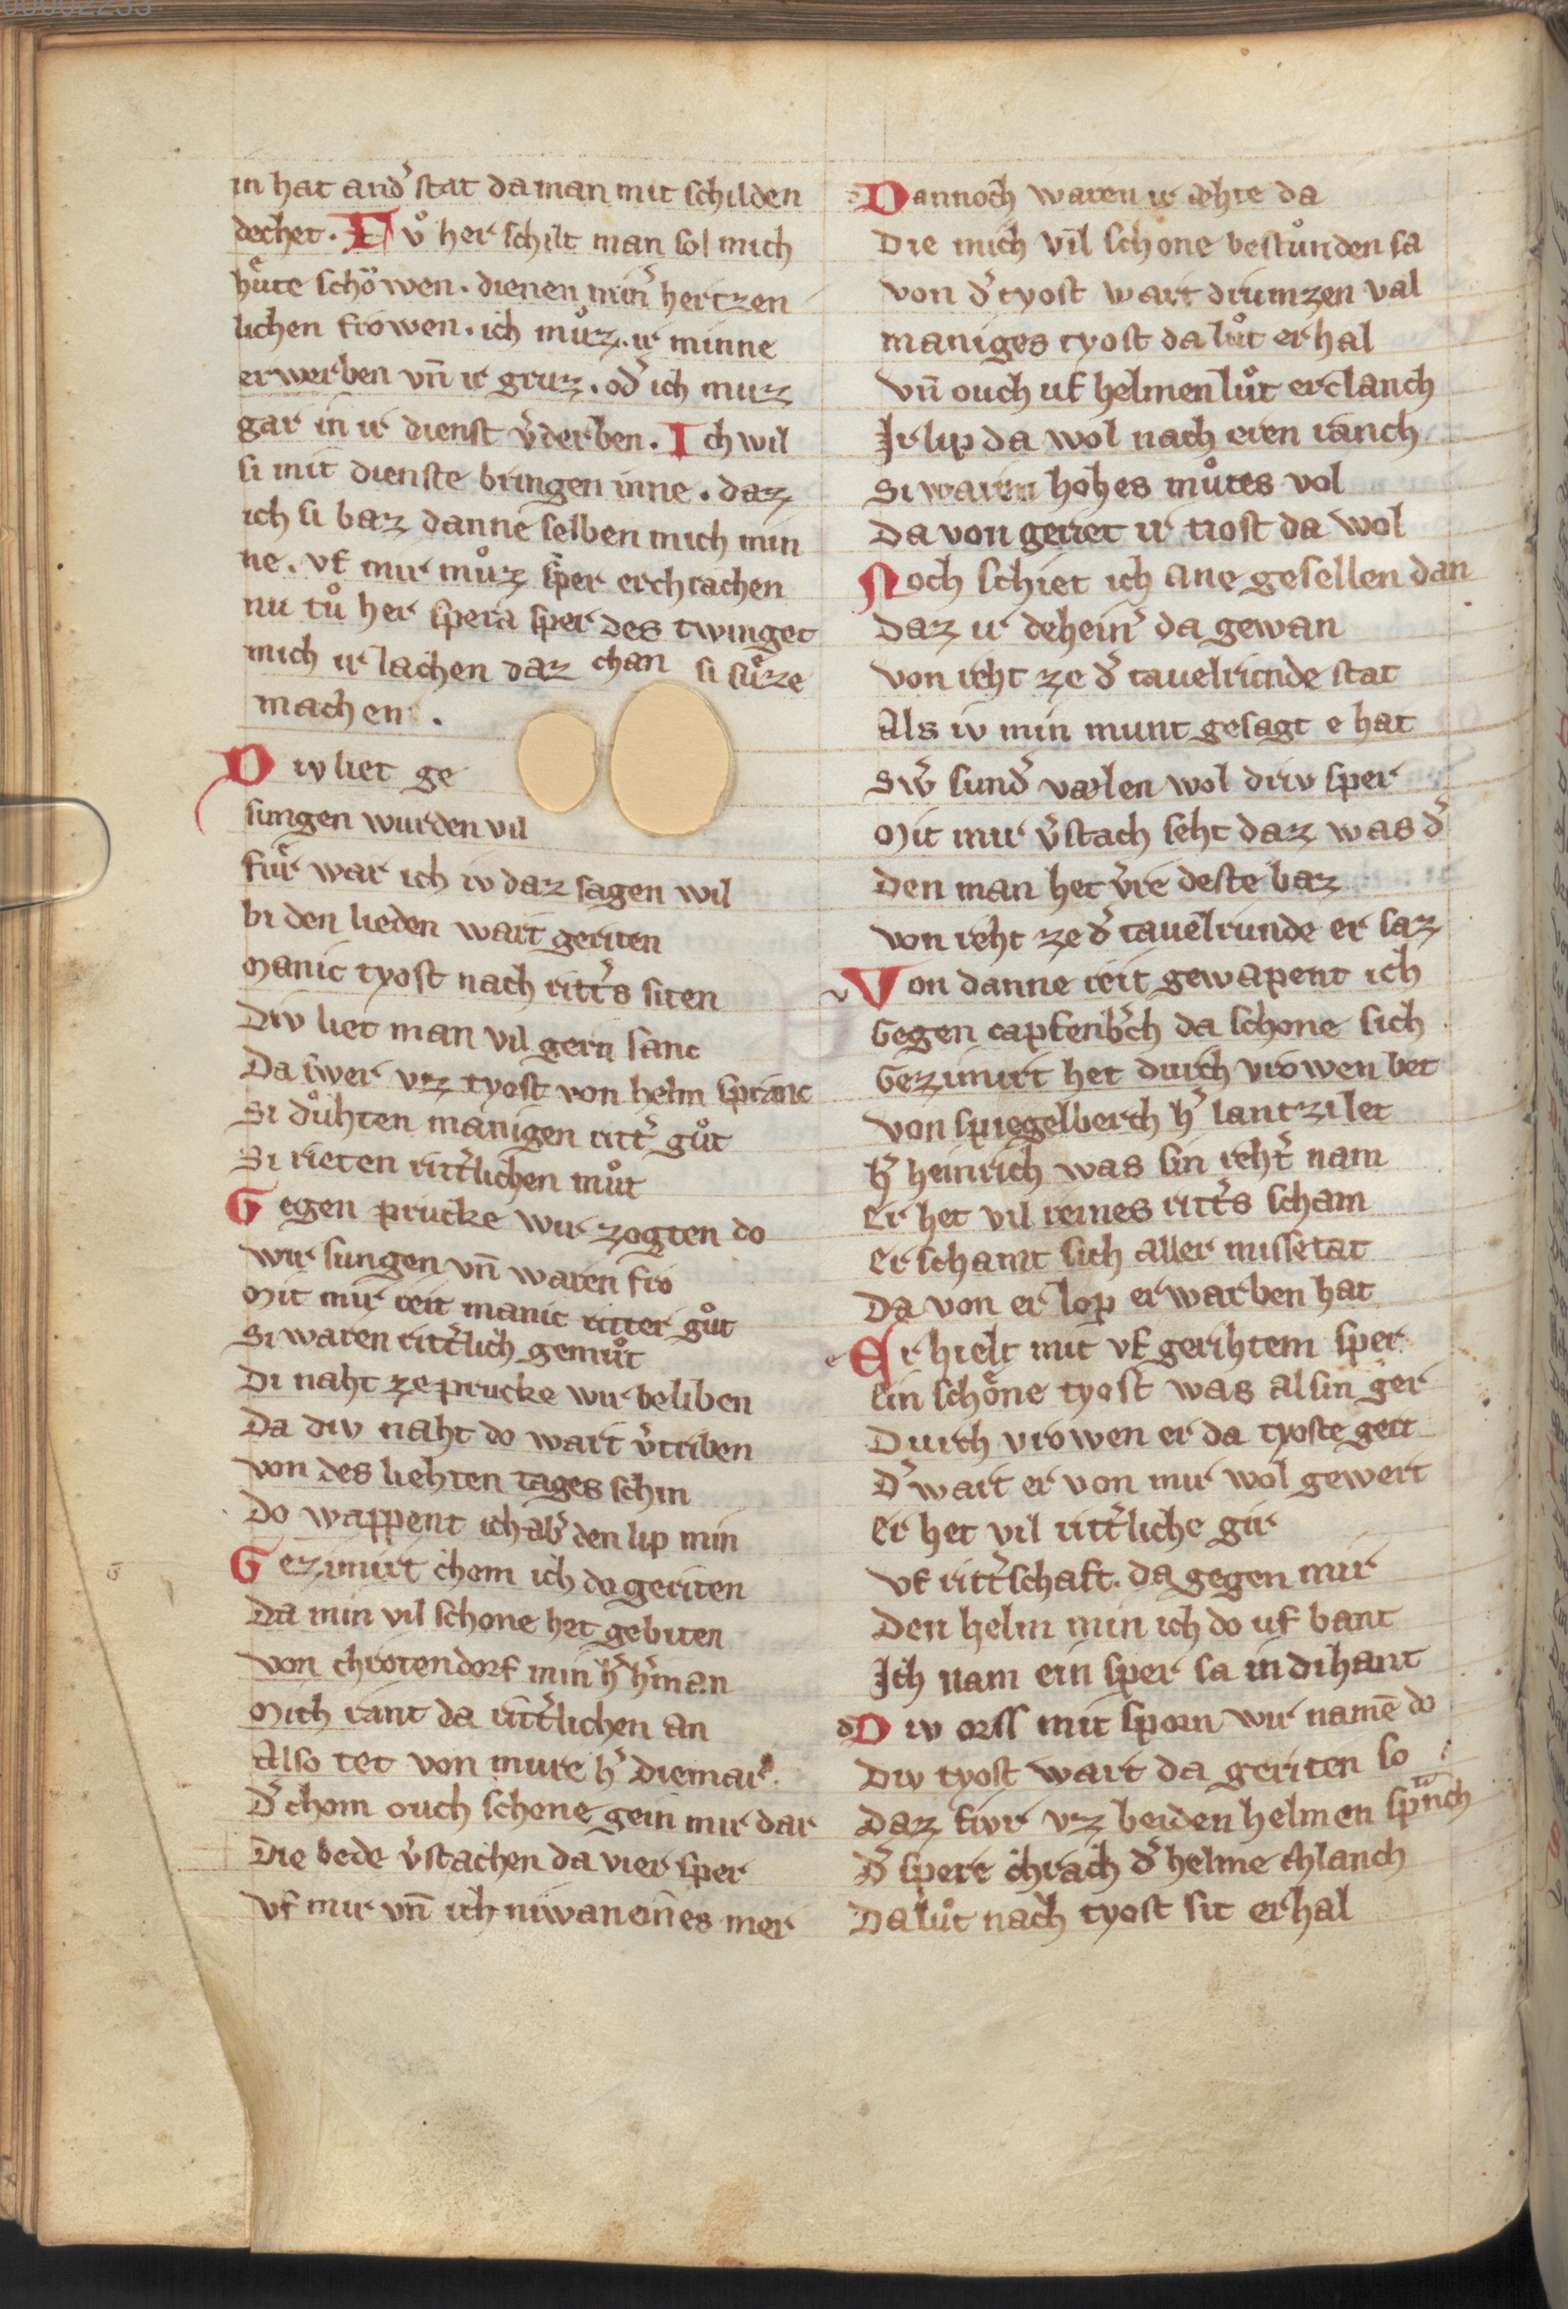 00002233
in hat and͛ stat da man mit schilden
dechet. Tuͦ her schilt man sol mich
huͤte schoͮwen. dienen min͛ hertzen
lichen frowen. ich muͦz. ir minne
erwerben vn̄ ir gruz. od͛ ich muz
gar in ir dienst v͛derben. Ich wil
si mit dienste bringen inne. daz
ich si baz danne selben mich min
ne. vf mir muͦz sper erchrachen
nu tuͦ her spera sper des twinget
mich ir lachen daz chan si suͤze
machen.
Div liet ge
sungen wurden vil
fuͤr war ich iv daz sagen wil
bi den lieden wart geriten
Manic tyost nach ritt͛s siten
Div liet man vil gern sanc
Da fiwer vz tyost von helm spranc
Si duͦhten manigen ritt͛ guͦt
Si rieten ritt͛lichen muͦt
Gegen prucke wir zogten do
wir sungen vn̄ waren fro
Mit mir reit manic ritter guͦt
Si waren ritt͛lich gemuͦt
Di naht ze prucke wir beliben
Da div naht do wart v͛triben
von des liehten tages schin
Do wappent ich ab͛ den lip min
Gezimirt chom ich do geriten
Da min vil schone het gebiten
von chrotendorf min h͛ h͛man
Mich rant da ritt͛lichen an
Also tet von mure h͛ diemar
D͛ chom ouch schone gein mir dar
Die bede v͛stachen da vier sper
Vf mir vn̄ ich niwan eines mer
Dannoch waren ir ehte da
Die mich vil schone bestuͦnden sa
von d͛ tyost wart drumzen val
maniges tyost da luͦt erhal
Vn̄ ouch uf helmen luͦt erclanch
Ir lip da wol nach eren ranch
Si waren hohes muͦtes vol
Da von geriet ir tiost da wol
Noch schiet ich ane gesellen dan
Daz ir dehein͛ da gewan
von reht ze d͛ tauelrunde stat
Als iv min munt gesagt e hat
Sw͛ sund͛ vaelen wol driv sper
Mit mir v͛stach seht daz was d͛
Den man het v͛re deste baz
von reht ze d͛ tauelrunde er saz
Von danne reit gewapent ich
Gegen capfenb͛ch da schone sich
Gezimirt het durch vrowen bet
von spiegelberch h͛ lantzilet
h͛ heinrich was sin reht͛ nam
Er het vil reines ritt͛s scham
Er schamt sich aller missetat
Da von er lop erwarben hat
Er hielt mit vf gerihtem sper
Ein schoͤne tyost was al sin ger
Durch vrowen er da tyoste gert
D͛ wart er von mir wol gewert
Er het vil ritt͛liche gir
Vf ritt͛schaft. da gegen mir
Den helm min ich do uf bant
Ich nam ein sper sa in di hant
Div orss mit sporn wir namē do
Div tyost wart da geriten so
Daz fivr vz beiden helmen spͣnch
D͛ spere chrach d͛ helme chlanch
Da luͦt nach tyost sit erhal